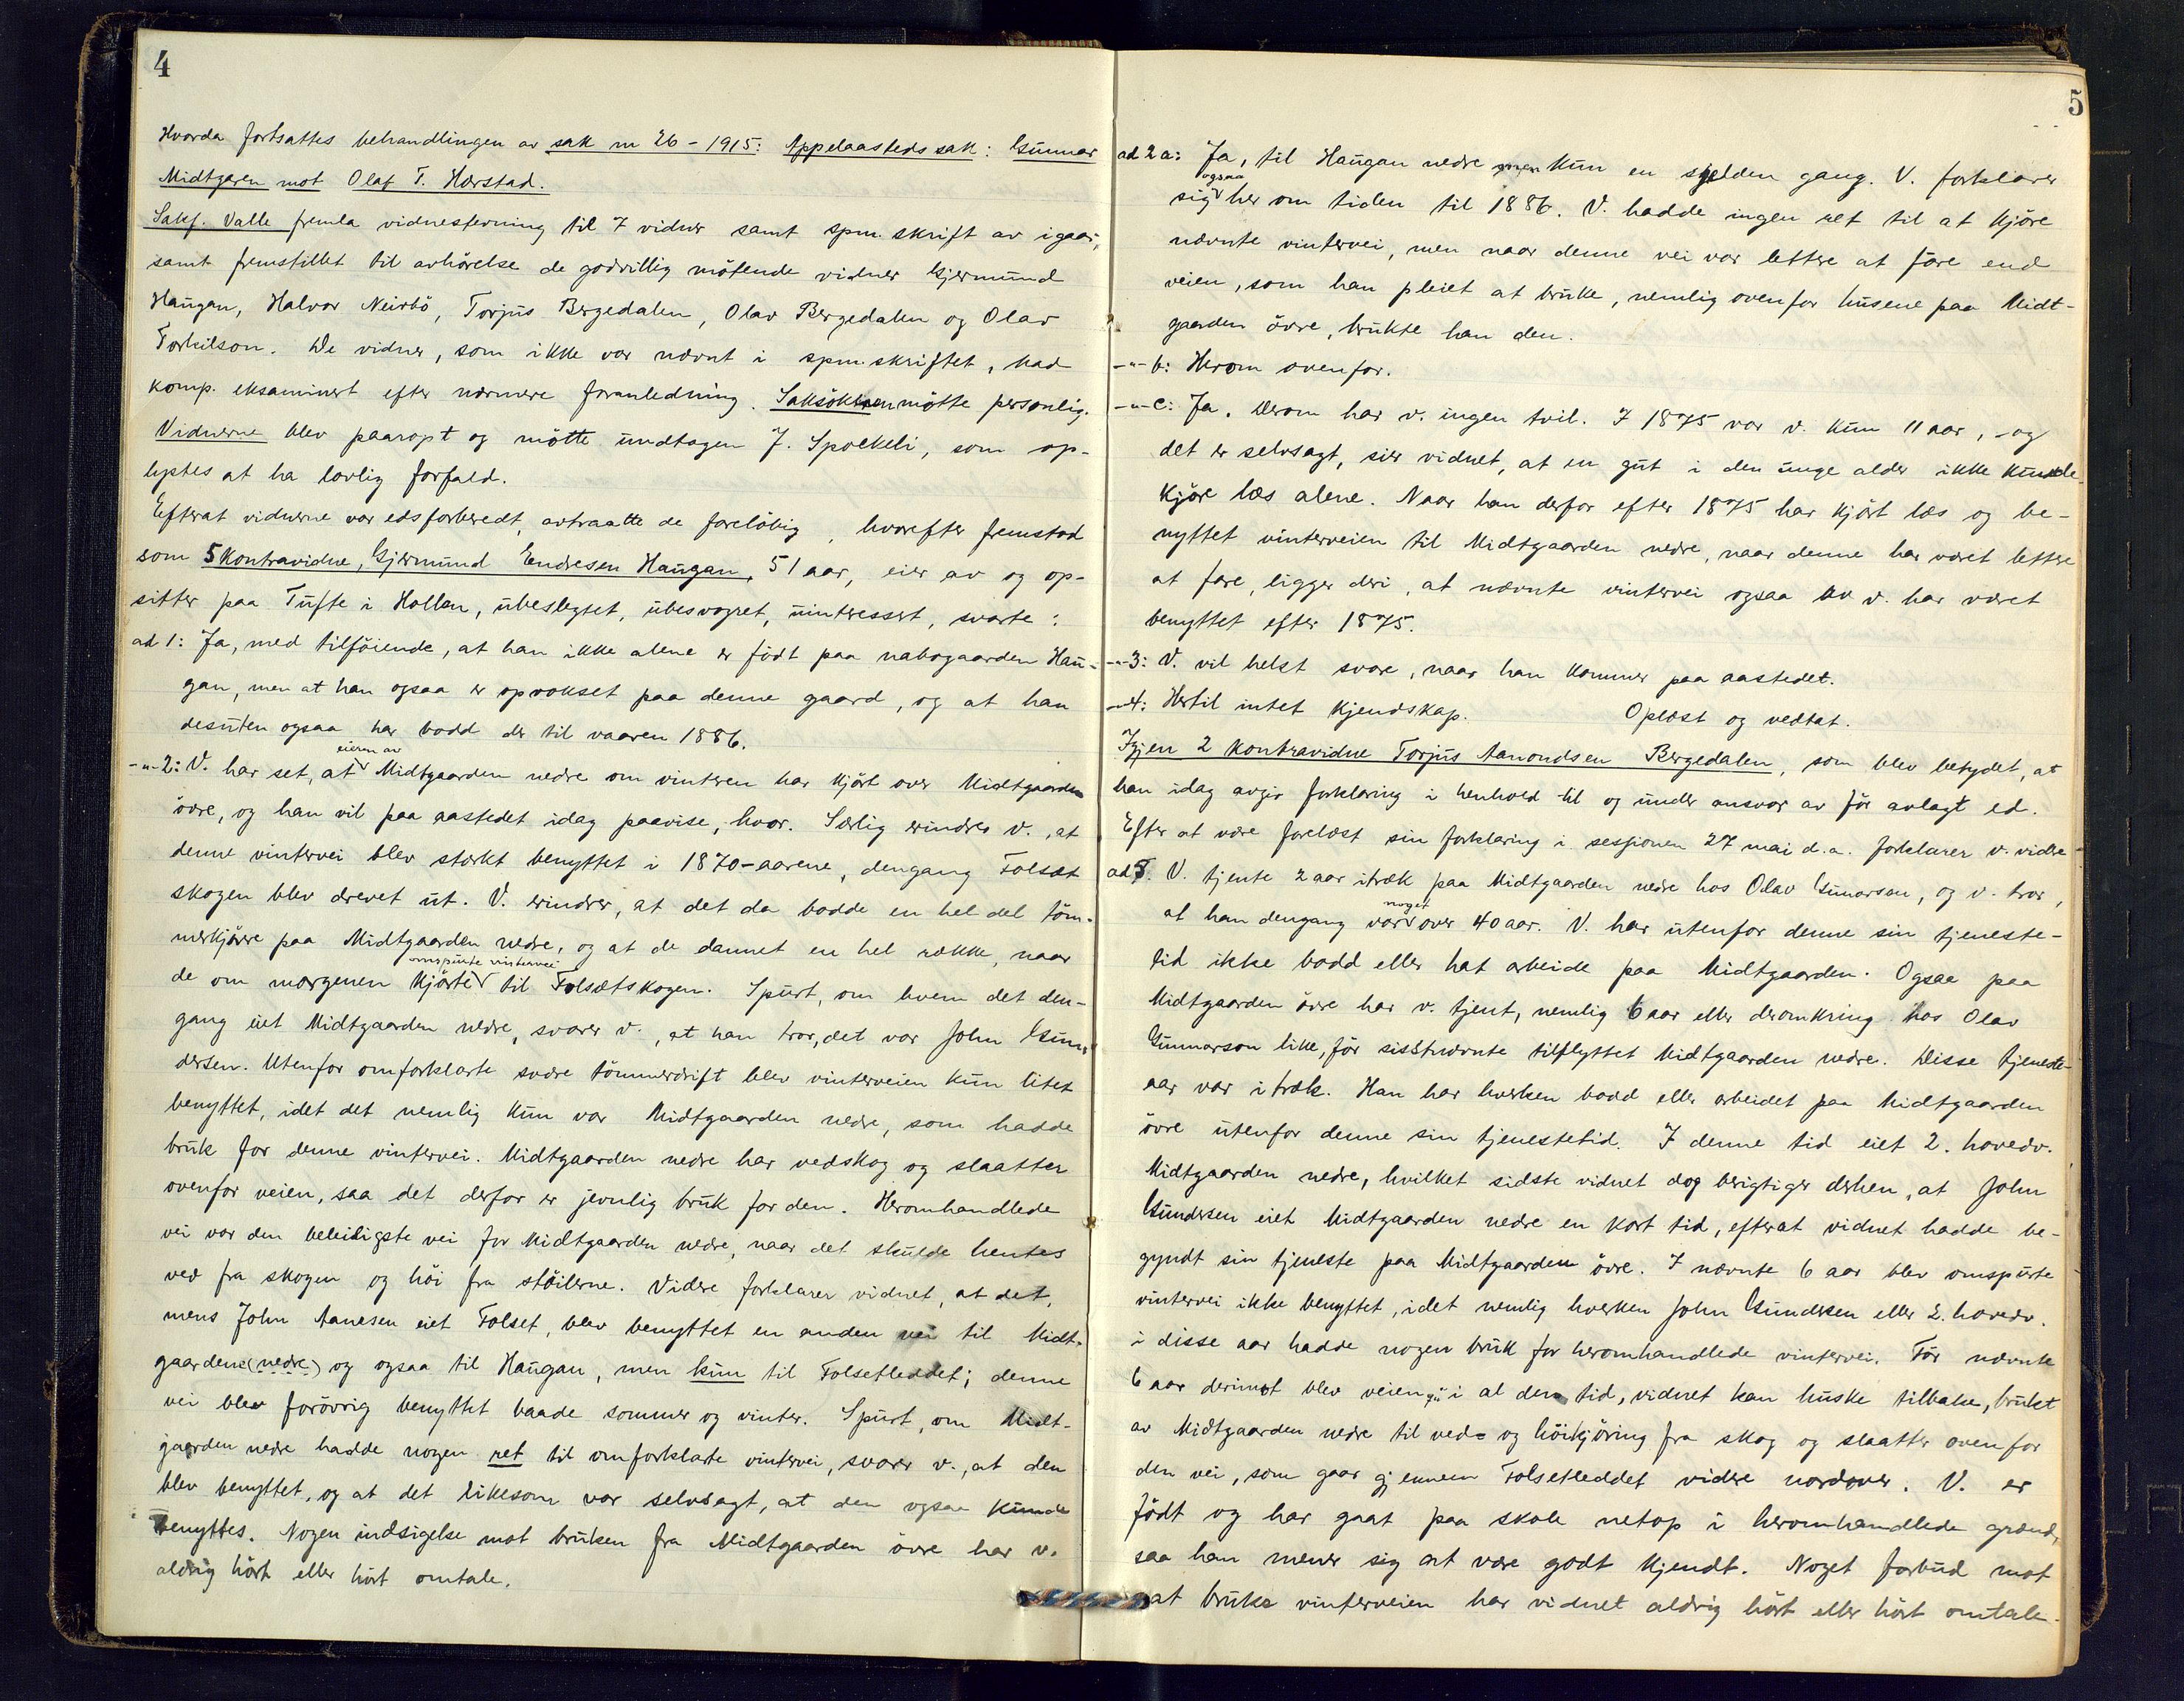 4
Hvorda fortsattes behandlingen av sak nr 26 - 1915: Appelaastedssak: Gunnar
Midtgaren mot Olaf T. Hærstad.
Sakf. Valle fremla vidnestevning til 7 vidner samt spm.skrift av igaar,
samt fremstillet til avhörelse de godvillig mötende vidner Gjermund
Haugan, Halvor Neirbö, Torjus Bergedalen, Olav Bergedalen og Olav
Torkilson. De vidner, som ikke var nævnt i spm.skriftet, bad
komp. eksaminert efter nærmere foranledning. Saksökeren mötte personlig.
Vidnerne blev paaropt og mötte undtagen J. Spockeli, som op-
lystes at ha lovlig forfald.
Efterat vidnerne var edsforberedt, avtraatte de foreløbig, hvorefter fremstod
som 5 kontravidne, Gjermund Endresen Haugan, 51 aar, eier av og op-
sitter paa Tufte i Hollen, ubeslegtet, ubesvogret, uinteressert, svarte:
ad 1: Ja, med tilföiende, at han ikke alene er födt paa nabogaarden Hau-
gan, men at han ogsaa er opvokset paa denne gaard, og at han
desuten ogsaa har bodd der til vaaren 1886.
-"- 2: V. har set, at eieren av Midtgaarden nedre om vinteren har kjört over Midtgaarden
övre, og han vil paa aastedet idag paavise, hvor. Særlig erindrer v., at
denne vintervei blev sterkt benyttet i 1870-aarene, dengang Folsæt
skogen blev drevet ut. V. erindrer, at det da bodde en hel del töm-
merkjørere paa Midtgaarden nedre, og at de dannet en hel række, naar
de om morgenen kjörte omspurte vintervei til Folsætskogen. Spurt, om hvem det den-
gang eiet Midtgaarden nedre, svarer v., at han tror, det var John Gun-
dersen. Utenfor omforklarte svære tömmerdrift blev vinterveien kun litet
benyttet, idet det nemlig kun var Midtgaarden nedre, som hadde
bruk for denne vintervei. Midtgaarden nedre har vedskog og slaatter
ovenfor veien, saa det derfor er jevnlig bruk for den. Heromhandlede
vei var den beleiligste vei for Midtgaarden nedre, naar det skulde hentes
ved fra skogen og höi fra stöilerne. Videre forklarer vidnet, at det,
mens John Aanesen eiet Folset, blev benyttet en anden vei til Midt-
gaardene (nedre) og ogsaa til Haugan, men kun til Folsetleddet; denne
vei blev forövrig benyttet baade sommer og vinter. Spurt, om Midt-
gaarden nedre hadde nogen ret til omforklarte vintervei, svarer v., at den
blev benyttet, og at det likesom var selvsagt, at den ogsaa kunde
benyttes. Nogen indsigelse mot bruken fra Midtgaarden övre har v.
aldrig hört eller hört omtale.
5
ad 2 a: Ja, til Haugan nedre men kun en sjelden gang. V. forklarer
sig ogsaa her om tiden til 1886. V. hadde ingen ret til at kjöre
nævnte vintervei, men naar denne vei var lettere at fare end
veien, som han pleiet at bruke, nemlig ovenfor husene paa Midt-
gaarden övre, brukte han den.
-"- b: Herom ovenfor.
-"- c: Ja. Derom har v. ingen tvil. I 1875 var v. kun 11 aar, - og
det er selvsagt, sier vidnet, at en gut i den unge alder ikke kunde
kjöre læs alene. Naar han derfor efter 1875 har kjört læs og be-
nyttet vinterveien til Midtgaarden nedre, naar denne har været lettere
at fare, ligger deri, at nævnte vintervei ogsaa av v. har været
benyttet efter 1875.
-"- 3: V. vil helst svare, naar han kommer paa aastedet.
-"- 4: Hertil intet kjendskap. Oplæst og vedtat.
Igjen 2 kontravidne Torjus Aanondsen Bergedalen, som blev betydet, at
han idag avgir forklaring i henhold til og under ansvar av för avlagt ed.
Efter at være forelæst sin forklaring i sessionen 27 mai d.a. forklarer v. vidre
ad 5. V. tjente 2 aar itræk paa Midtgaarden nedre hos Olav Gunarson, og v. tror,
at han dengang var noget over 40 aar. V. har utenfor denne sin tjeneste-
tid ikke bodd eller hat arbeide paa Midtgaarden. Ogsaa paa
Midtgaarden övre har v. tjent, nemlig 6 aar eller deromkring hos Olav
Gunnarson like, för sistnævnte tilflyttet Midtgaarden nedre. Disse tjeneste-
aar var itræk. Han har hverken bodd eller arbeidet paa Midtgaarden
övre utenfor denne sin tjenestetid. I denne tid eiet 2. hovedv.
Midtgaarden nedre, hvilket sidste vidnet dog berigtiger derhen, at John
Gundersen eiet Midtgaarden nedre en kort tid, efterat vidnet hadde be-
gyndt sin tjeneste paa Midtgaarden övre. I nævnte 6 aar blev omspurte
vintervei ikke benyttet, idet nemlig hverken John Gundersen eller 2. hovedv.
i disse aar hadde nogen bruk for heromhandlede vintervei. För nævnte
6 aar derimot blev veien i al den tid, vidnet kan huske tilbake, brukt
av Midtgaarden nedre til ved- og höikjöring fra skog og slaatter ovenfor
den vei, som gaar gjennem Folsetleddet videre nordover. V. er
födt og har gaat paa skole netop i heromhandlede grænd,
saa han mener sig at være godt kjendt. Noget forbud mot
at bruke vinterveien har vidnet aldrig hört eller hört omtale.